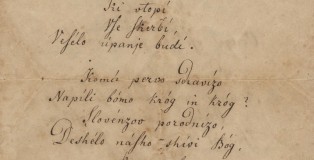 Ki vtopí
Vse skerbí,
V' sélo úpanje budí.
Komú pervo sdravízo
Napíli bómo króg in króg?
Slovénzov porodnízo,
Deshêlo násho shívi Bóg,